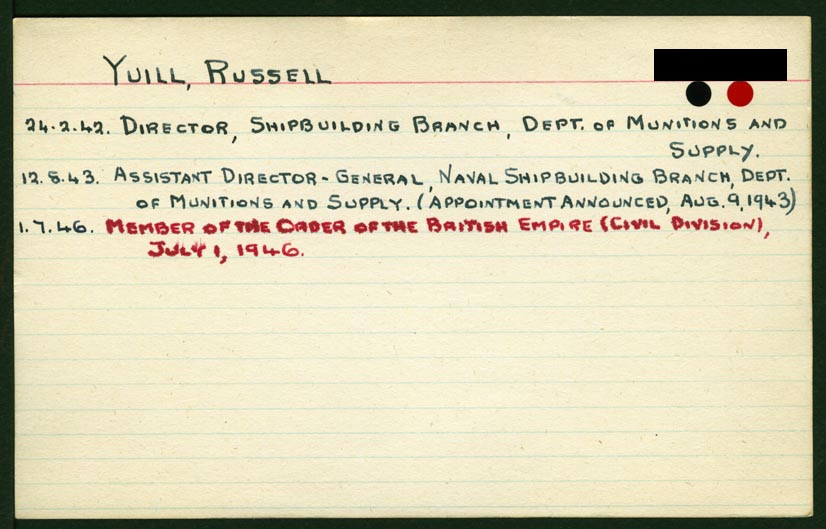 YUILL, RUSSELL
24.2.42. DIRECTOR, SHIPBUILDING BRANCH, DEPT. OF MUNITIONS AND
SUPPLY.
12.8.43. ASSISTANT DIRECTOR-GENERAL, NAVAL SHIPBUILDING BRANCH, DEPT.
OF MUNITIONS AND SUPPLY. (APPOINTMENT ANNOUNCED, AUG. 9, 1943)
1.7.46. MEMBER OF THE ORDER OF THE BRITISH EMPIRE (CIVIL DIVISION),
JULY 1, 1946.